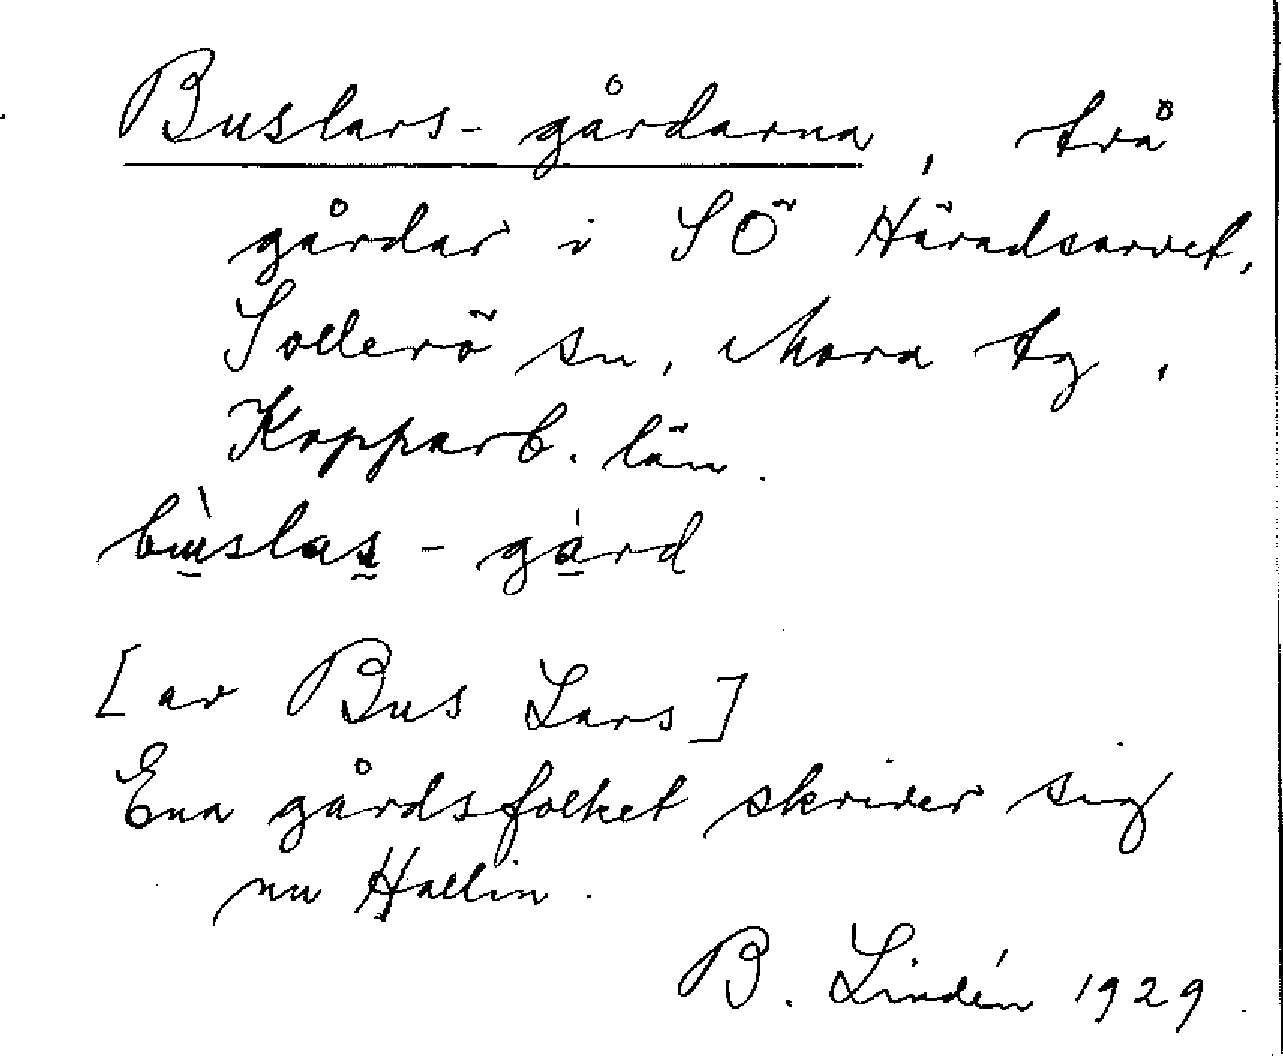 Buslars-gårdarna, två
gårdar i SÖ Häradsarvet,
Sollerö sn, Mora tg,
Kopparb. län.
bùslas-gård
[av Bus Lars]
Ena gårdsfolket skriver sig
nu Hallin.
B. Lindén 1929